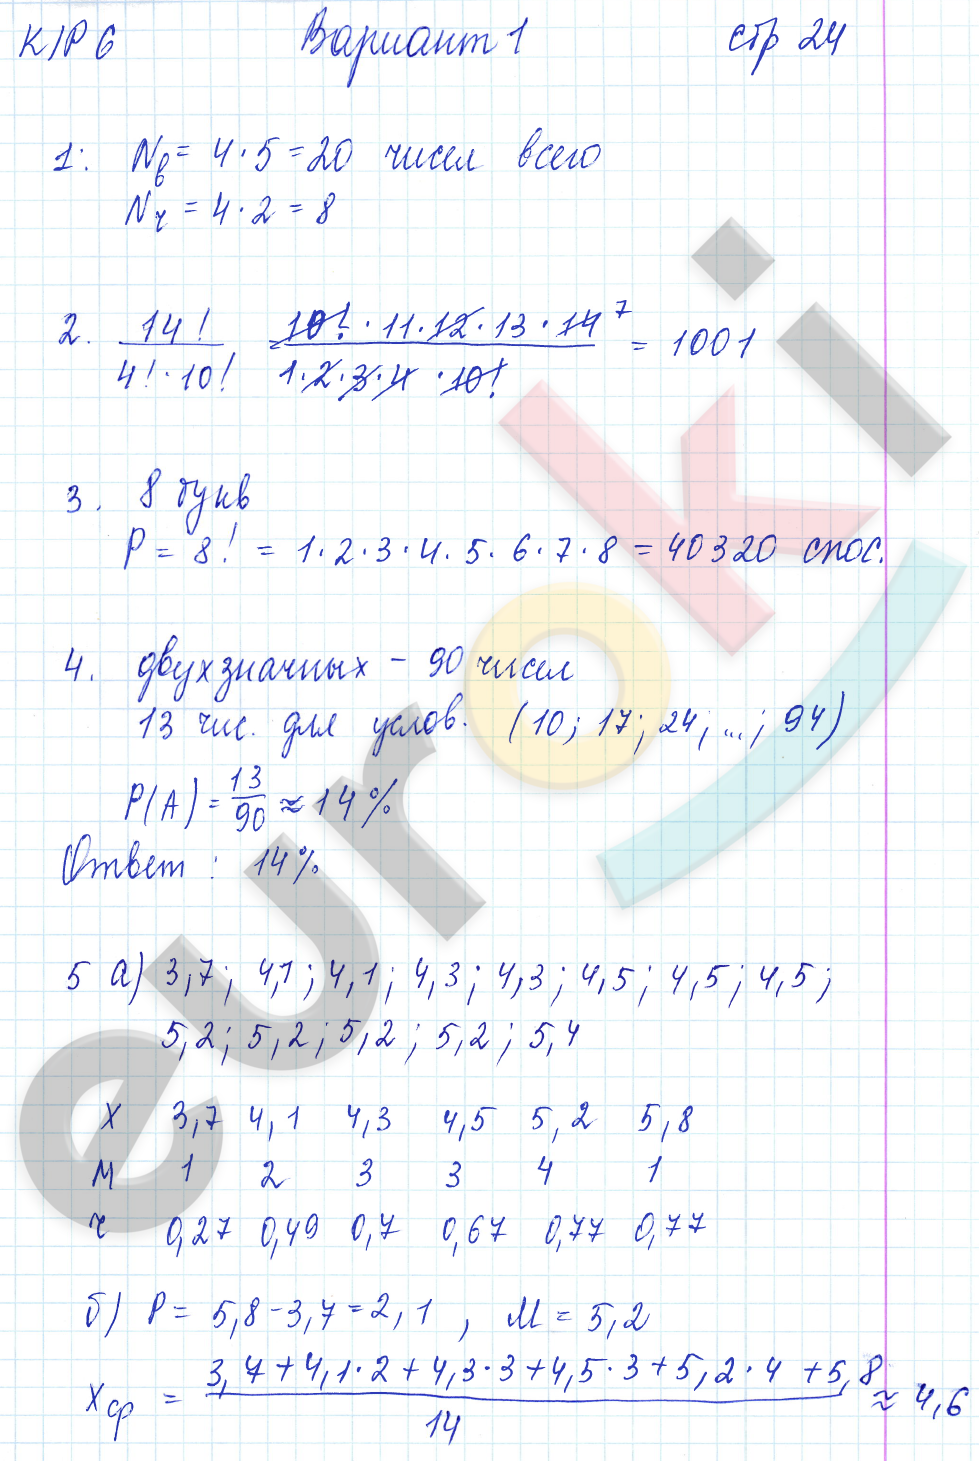 К/Р 6 Вариант 1 стр 24
1: Nв = 4·5 = 20 чисел всего
Nч = 4·2 = 8
2. 14! / 4!·10! = 10!·11·12·13·14 7 / 1·2·3·4·10! = 1001
3. 8 букв
P = 8! = 1·2·3·4·5·6·7·8 = 40320 спос.
4. двухзначных – 90 чисел
13 чис. для услов. (10; 17; 24; ...; 94)
P(A) = 13/90 ≈ 14%
Ответ: 14%
5 а) 3,7; 4,1; 4,1; 4,3; 4,3; 4,5; 4,5; 4,5;
5,2; 5,2; 5,2; 5,2; 5,4
X 3,7 4,1 4,3 4,5 5,2 5,8
М 1 2 3 3 4 1
ч 0,27 0,49 0,7 0,67 0,77 0,77
б) P = 5,8-3,7 = 2,1, М = 5,2
Xср = 3,7+4,1·2+4,3·3+4,5·3+5,2·4+5,8 / 14 ≈ 4,6
euroki